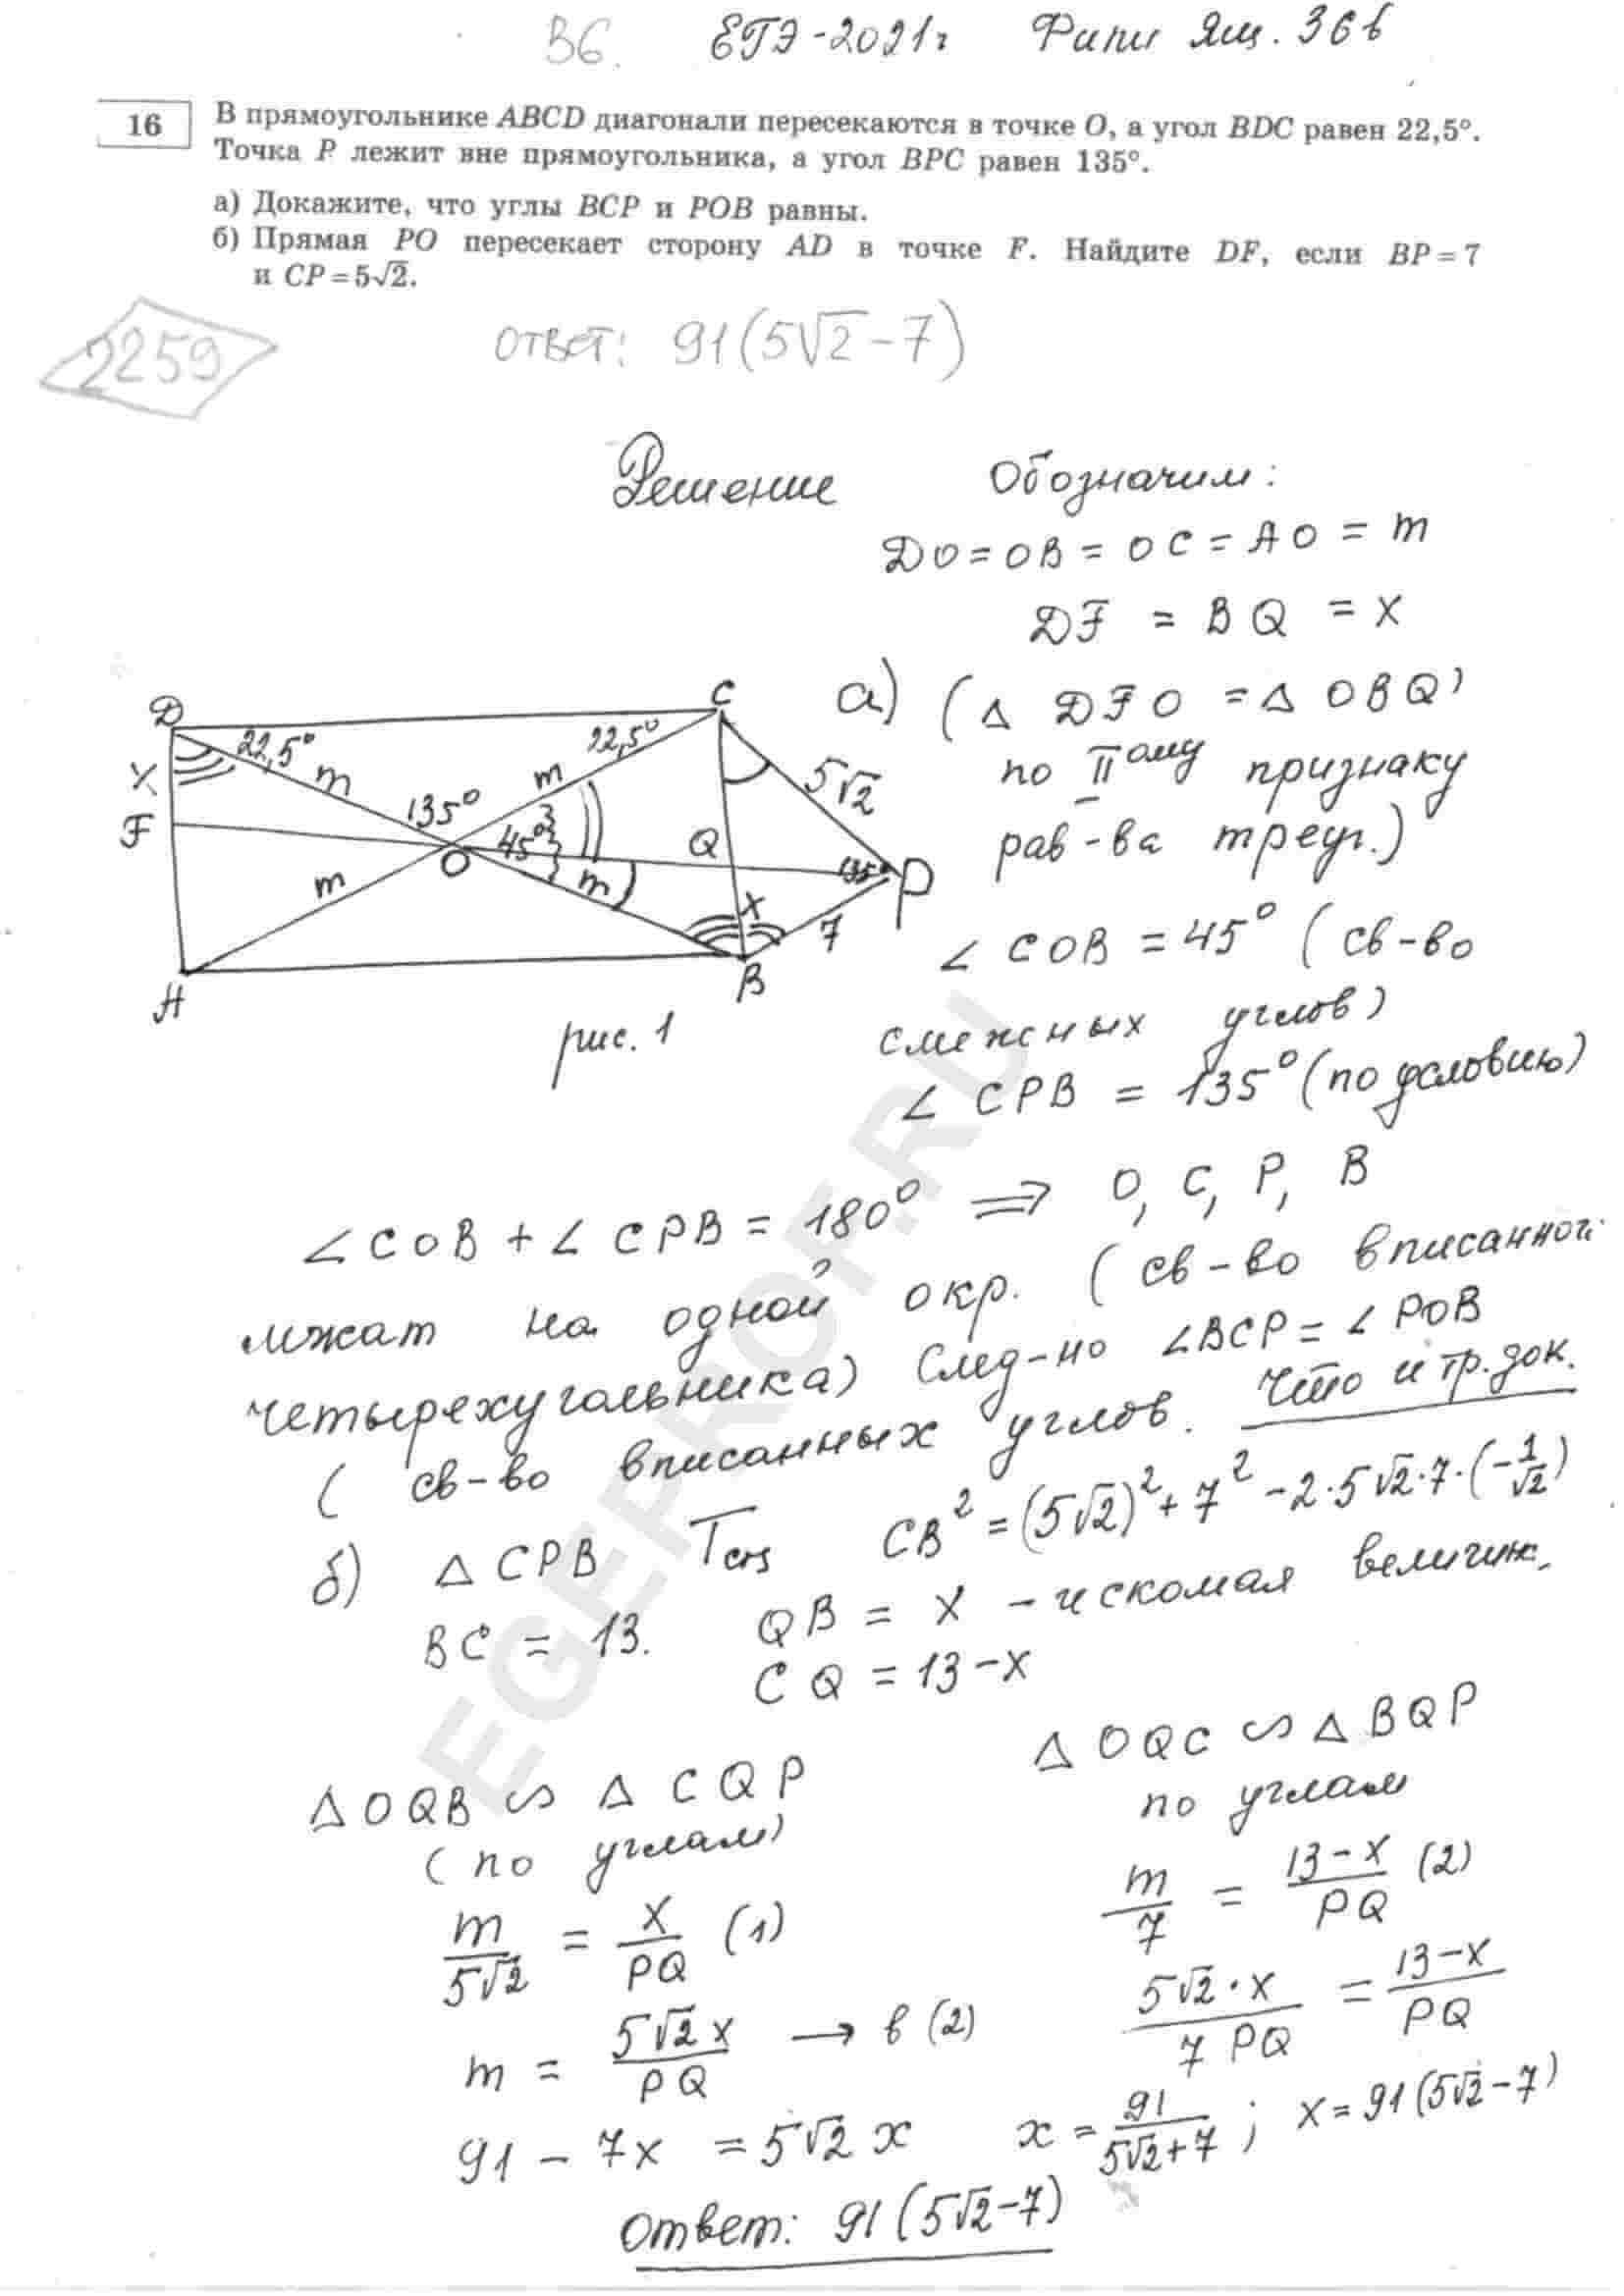 В6. ЕГЭ-2021г Фипи Ящ. 36 в
16
В прямоугольнике ABCD диагонали пересекаются в точке O, а угол BDC равен 22,5°.
Точка P лежит вне прямоугольника, а угол BPC равен 135°.
а) Докажите, что углы BCP и POB равны.
б) Прямая PO пересекает сторону AD в точке F. Найдите DF, если BP = 7
и CP = 5√2.
2259
ответ: 91(5√2 - 7)
Решение
Обозначим:
DO = OB = OC = AO = m
DF = BQ = x
D
C
22,5°
22,5°
x
m
m
5√2
F
135°
45°
O
Q
135°
P
m
m
x
7
A
B
рис. 1
а) (△ DFO = △ OBQ)
по II ому признаку
рав-ва треуг.)
∠ COB = 45° (св-во
смежных углов)
∠ CPB = 135° (по условию)
∠COB + ∠ CPB = 180° ⇒ O, C, P, B
лежат на одной окр. (св-во вписанной
четырехугольника) След-но ∠BCP = ∠ POB
( св-во вписанных углов. Что и тр. док.
б) △ CPB Tcos CB² = (5√2)² + 7² - 2·5√2·7·(-1/√2)
BC = 13. QB = x - искомая величин.
CQ = 13 - x
△ OQB ∽ △ CQP
(по углам)
m/5√2 = x/PQ (1)
m = 5√2 x/PQ → в (2)
△ OQC ∽ △ BQP
по углам
m/7 = 13-x/PQ (2)
5√2·x/7 PQ = 13-x/PQ
91 - 7x = 5√2 x x = 91/5√2+7 ; x = 91(5√2-7)
Ответ: 91(5√2-7)
EGEPROF.RU